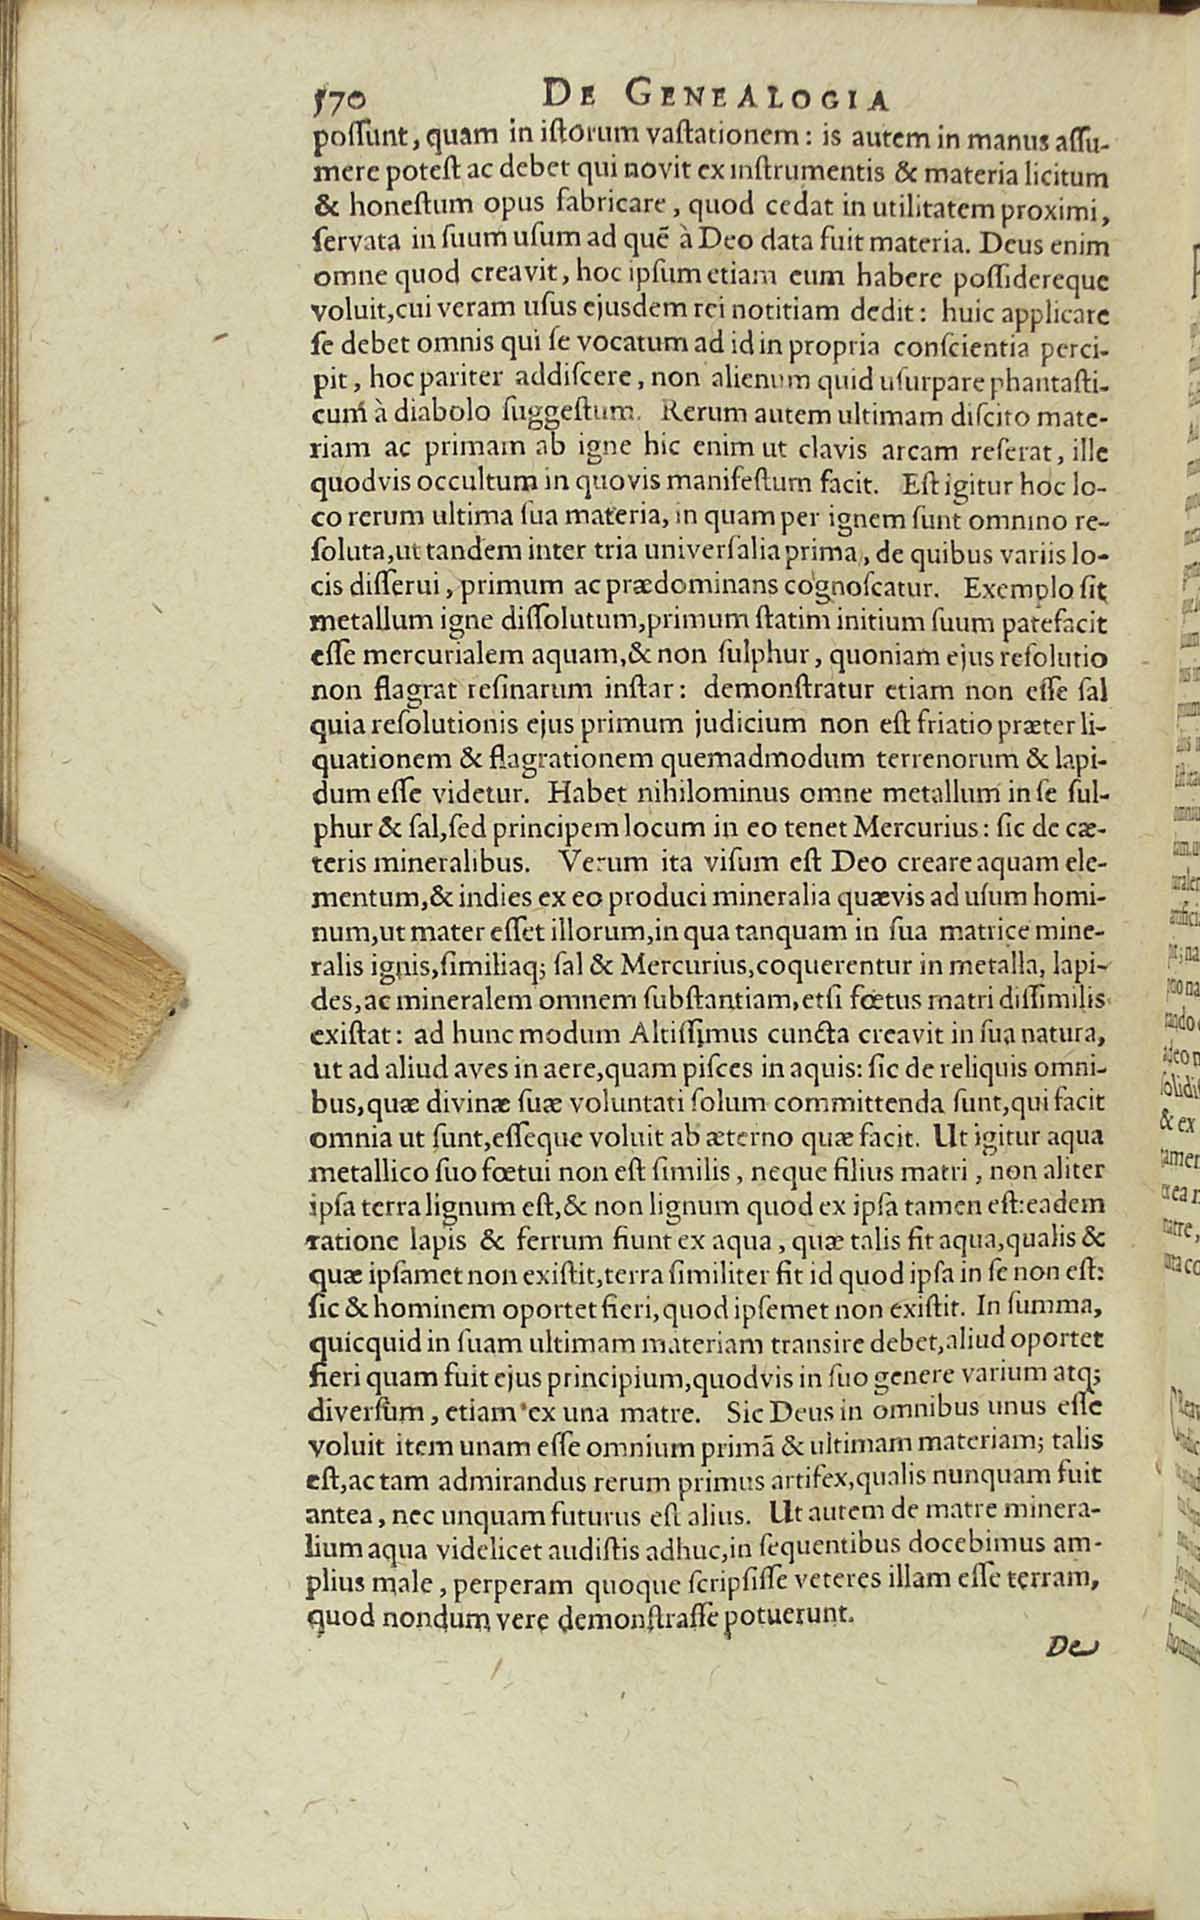 570 De Genealogia
possunt, quam in istorum vastationem: is autem in manus assu-
mere potest ac debet qui novit ex instrumentis & materia licitum
& honestum opus fabricare, quod cedat in utilitatem proximi,
servata in suum usum ad quē à Deo data fuit materia. Deus enim
omne quod creavit, hoc ipsum etiam eum habere possidereque
voluit, cui veram usus ejusdem rei notitiam dedit: huic applicare
se debet omnis qui se vocatum ad id in propria conscientia perci-
pit, hoc pariter addiscere, non alienum quid usurpare phantasti-
cum à diabolo suggestum. Rerum autem ultimam discito mate-
riam ac primam ab igne hic enim ut clavis arcam reserat, ille
quodvis occultum in quovis manifestum facit. Est igitur hoc lo-
co rerum ultima sua materia, in quam per ignem sunt omnino re-
soluta, ut tandem inter tria universalia prima, de quibus variis lo-
cis disserui, primum ac prædominans cognoscatur. Exemplo sit
metallum igne dissolutum, primum statim initium suum patefacit
esse mercurialem aquam, & non sulphur, quoniam ejus resolutio
non flagrat resinarum instar: demonstratur etiam non esse sal
quia resolutionis ejus primum judicium non est friatio præter li-
quationem & flagrationem quemadmodum terrenorum & lapi-
dum esse videtur. Habet nihilominus omne metallum in se sul-
phur & sal, sed principem locum in eo tenet Mercurius: sic de cæ-
teris mineralibus. Verum ita visum est Deo creare aquam ele-
mentum, & indies ex eo produci mineralia quævis ad usum homi-
num, ut mater esset illorum, in qua tanquam in sua matrice mine-
ralis ignis, similiaq; sal & Mercurius, coquerentur in metalla, lapi-
des, ac mineralem omnem substantiam, etsi fœtus matri dissimilis
existat: ad hunc modum Altissimus cuncta creavit in sua natura,
ut ad aliud aves in aere, quam pisces in aquis: sic de reliquis omni-
bus, quæ divinæ suæ voluntati solum committenda sunt, qui facit
omnia ut sunt, esseque voluit ab æterno quæ facit. Ut igitur aqua
metallico suo fœtui non est similis, neque filius matri, non aliter
ipsa terra lignum est, & non lignum quod ex ipsa tamen est: eadem
ratione lapis & ferrum fiunt ex aqua, quæ talis fit aqua, qualis &
quæ ipsamet non existit, terra similiter fit id quod ipsa in se non est:
sic & hominem oportet fieri, quod ipsemet non existit. In summa,
quicquid in suam ultimam materiam transire debet, aliud oportet
fieri quam fuit ejus principium, quodvis in suo genere varium atq;
diversum, etiam ex una matre. Sic Deus in omnibus unus esse
voluit item unam esse omnium primā & ultimam materiam; talis
est, ac tam admirandus rerum primus artifex, qualis nunquam fuit
antea, nec unquam futurus est alius. Ut autem de matre minera-
lium aqua videlicet audistis adhuc, in sequentibus docebimus am-
plius male, perperam quoque scripsisse veteres illam esse terram,
quod nondum vere demonstrasse potuerunt.
De